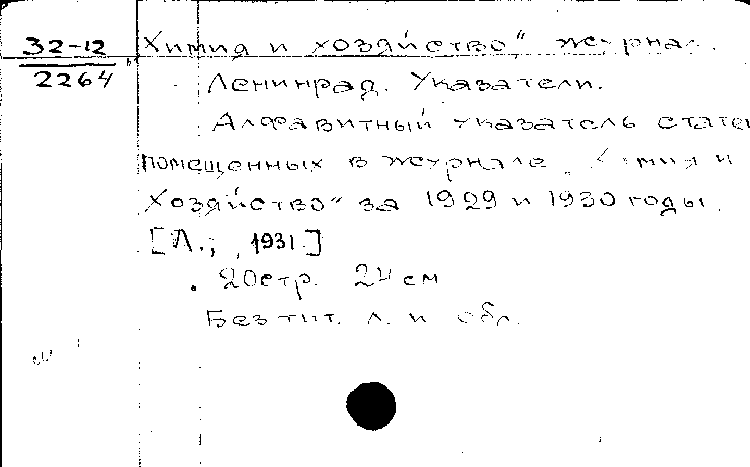 32-12
2264
„Химия и хозяйство", журнал.
Ленинград. Указатели.
Алфавитный указатель статей
помещенных в журнале „Химия и
Хозяйство" за 1929 и 1930 годы.
[Л., 1931.]
20 стр. 24 см
Без тит. л. и обл.